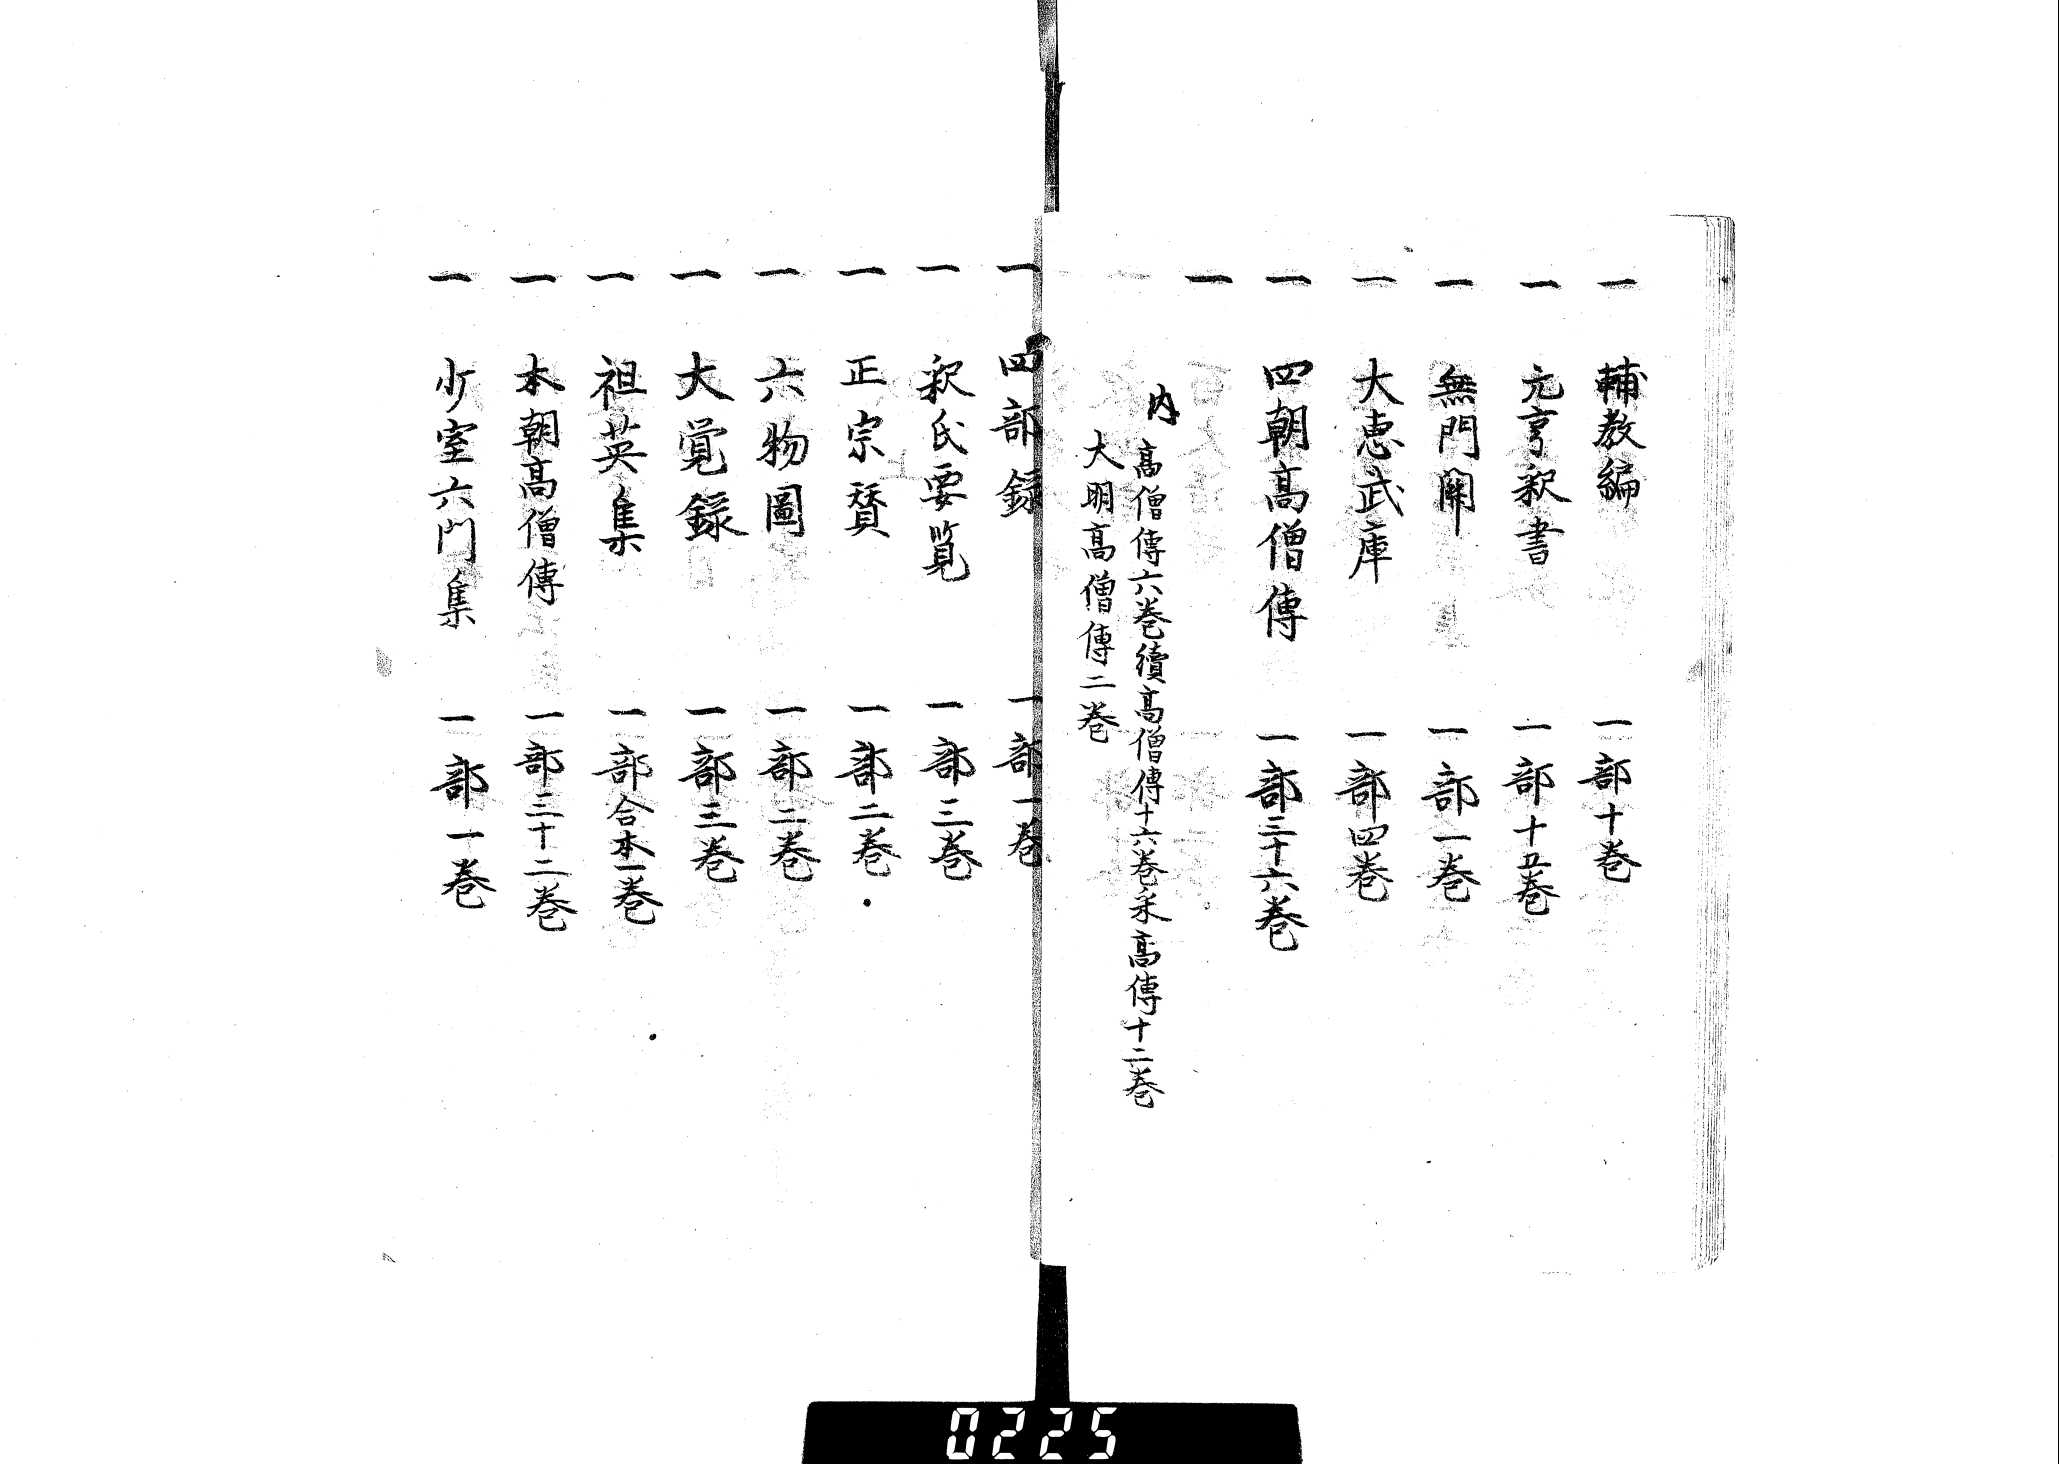 一 輔教編 一部十巻
一 元亨釈書 一部十五巻
一 無門関 一部一巻
一 大恵武庫 一部四巻
一 四朝高僧傳 一部三十六巻
一 内 高僧傳六巻續高僧傳十六巻宋高傳十二巻
大明高僧傳二巻
一 四部録 一部一巻
一 釈氏要覧 一部三巻
一 正宗賛 一部二巻
一 六物圖 一部二巻
一 大覚録 一部三巻
一 祖英集 一部合本一巻
一 本朝高僧傳 一部三十二巻
一 少室六門集 一部一巻
0225